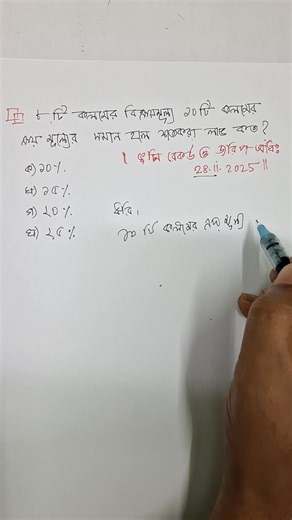 ৮ টি কলমের বিক্রয়মূল্য ১০টি কলমের
ক্রয় মূল্যের সমান হলে শতকরা লাভ কত?
[ ভূমি রেকর্ড ও জরিপ অধিঃ
28.11.2025 ]
ক) ১০%
খ) ১৫%
গ) ২০%
ঘ) ২৫%
ধরি,
১০ টি কলমের ক্রয় মূল্য